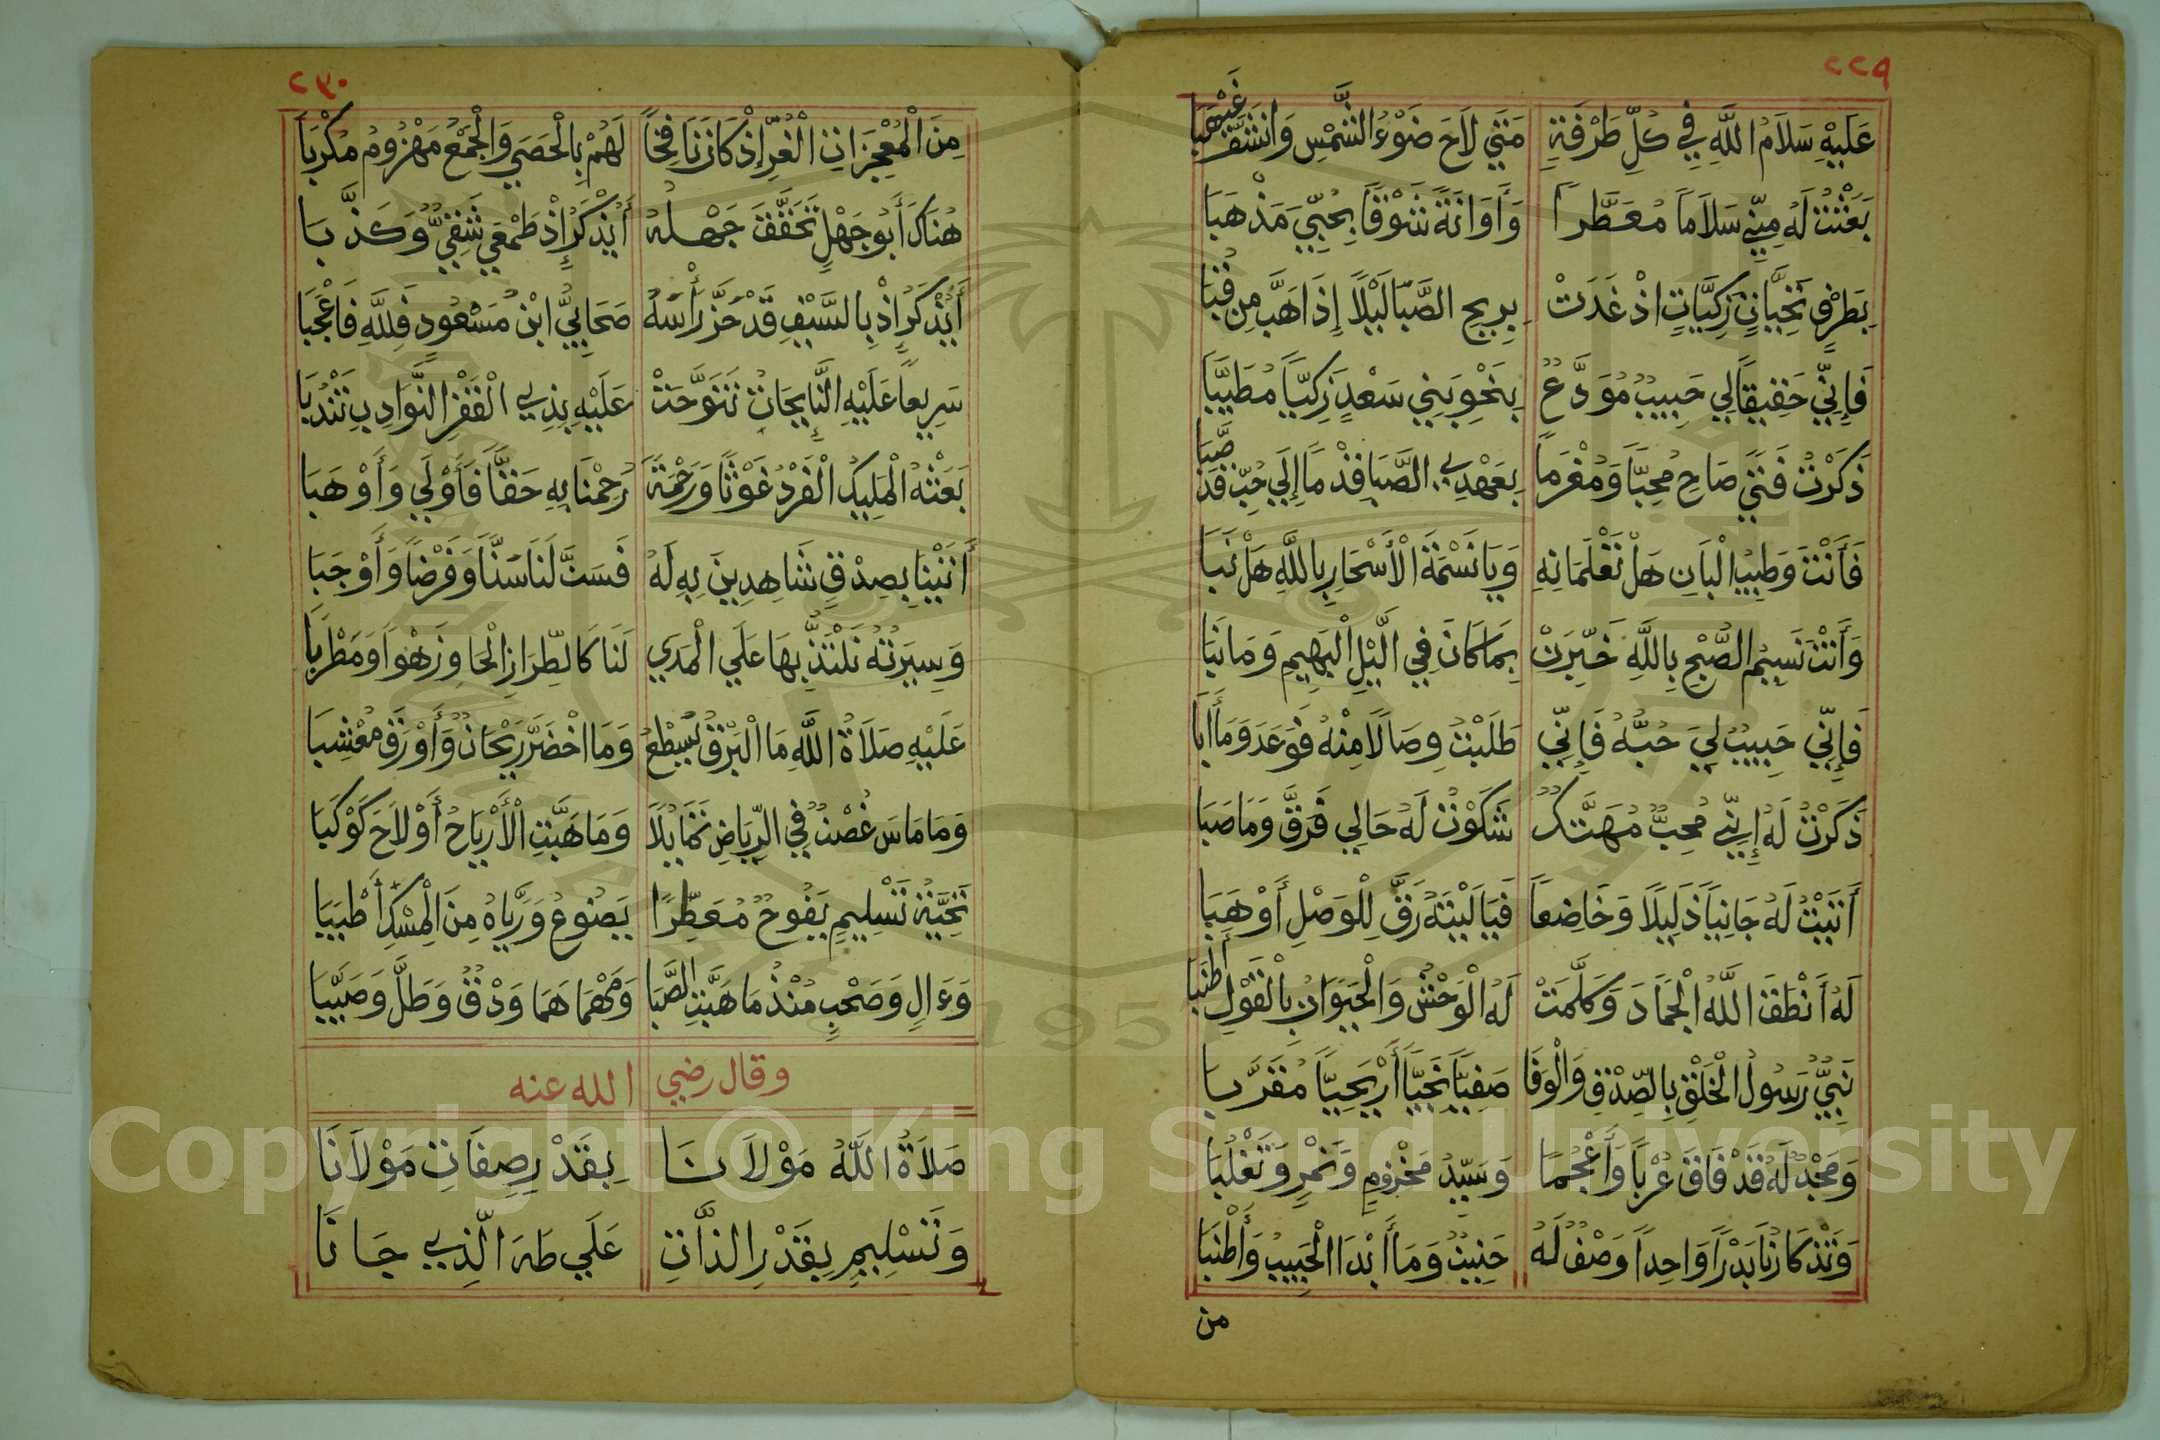 ٢٢٩
عَلَيْهِ سَلَامُ اللَّهِ فِي كُلِّ طَرْفَةٍ مَتَي لَاحَ ضَوْءُ الشَّمْسِ وَانشَقَّ غَيْهَبَا
بَعَثْتُ لَهُ مِنِّي سَلَامًا مُعَطَّرًا شَوْقًا بِحُبِّيَ مَذْهَبَا
زَكِيَّاتٍ اذْ غَدَتْ بِرِيحِ الصَّبَا لَيْلًا إِذَا هَبَّ مِن قُبَا
فَإِنِّي حَقِيقًا لِي حَبِيبٌ مُوَدَّعٌ بِنَحْوِ بَنِي سَعْدٍ زَكِيًّا مُطَيَّبَا
ذَكَرْتُ فَتَيً صَاحِ مُحِبًّا وَمُغْرَمًا بِعَهْدِ الصَّبَا قِدْمًا إِلَي حُبِّ قَدْ صَبَا
فَأَنْتَ وَطِيبُ الْبَانِ هَلْ تَعْلَمَانِهِ وَيَا نَسْمَةَ الْأَسْحَارِ بِاللَّهِ هَلْ نَبَا
وَأَنْتَ نَسِيمُ الصُّبْحِ بِاللَّهِ خَبِّرَتْ بِمَا كَانَ فِي الَّيْلِ الْبَهِيمِ وَمَا نَبَا
فَإِنِّي حَبِيبٌ لِيَ حُبُّهُ فَإِنِّي طَلَبْتُ وِصَالًا مِنْهُ فَوَعَدَ وَمَا أَبَا
ذَكَرْتُ لَهُ إِنِّي مُحِبٌّ مُهَتَّكٌ شَكَوْتُ لَهُ حَالِي فَرَقَّ وَمَا صَبَا
أَتَيْتُ لَهُ جَانِيًا ذَلِيلًا وَخَاضِعًا فَيَا لَيْتَهُ رَقَّ لِلْوَصْلِ أَوْهَبَا
لَهُ أَنْطَقَ اللَّهُ الْجَمَادَ وَكَلَّمَتْ لَهُ الْوَحْشُ وَالْحَيَوَانُ بِالْقَوْلِ أَطْنَبَا
نَبِيُّ رَسُولُ الْخَلْقِ بِالصِّدْقِ وَالْوَفَا صَفِيًّا نَجِيًّا أَرْيَحِيًّا مُقَرَّبَا
وَمَجْدٌ لَهُ قَدْ فَاقَ عُرْبًا وَأَعْجُمًا وَسَيِّدُ مَخْزُومٍ وَنَمْرٍ وَتَغْلُبَا
وَتَذْكَارُنَا بَدْرًا وَاحِدًا وَصْفٌ لَهُ حَنِيتٌ وَمَا أَبْدَا الْحَبِيبُ وَأَطْنَبَا
من
٢٣٠
مِنَ الْمُعْجِزَاتِ الْغُرِّ إِذْ كَانَ نَافِحًا لَهُمْ بِالْحَصَي وَالْجَمْعُ مَهْزُومُ مُكْرَبَا
هُنَاكَ أَبُو جَهْلٍ تَحَقَّقَ جَهْلُهُ أَيُذْكَرُ إِذْ طَمْعِي شَقِيٌّ وَكَذَّبَا
أَيُذْكَرُ إِذْ بِالسَّيْفِ قَدْ حَزَّ رَأْسَهُ صَحَابِيُّ ابْنُ مَسْعُودٍ فَلِلَّهِ فَاعْجَبَا
سَرِيعًا عَلَيْهِ النَّائِحَاتُ تَنَوَّحَتْ عَلَيْهِ بِذِي الْقَفْرِ النَّوَادِبِ تَنْدُبَا
بَعَثَهُ الْمَلِيكُ الْفَرْدُ غَوْثًا وَرَحْمَةً رُحِمْنَا بِهِ حَقًّا فَأَوْلَي وَأَوْهَبَا
أَتَيْنَا بِصِدْقٍ شَاهِدِينَ بِهِ لَهُ فَسَنَّ لَنَا سُنًّا وَفَرْضًا وَأَوْجَبَا
وَسِيرَتُهُ نَلْتَذُّ بِهَا عَلَي الْمَدَي لَنَا كَالطِّرَازِ الْحَاوِ زَهْوًا وَمَطْرَبَا
عَلَيْهِ صَلَاةُ اللَّهِ مَا الْبَرْقُ يُسْطَعُ وَمَا اخْضَرَّ رَيْحَانٌ وَأَوْرَقَ مُعْشِبَا
وَمَا مَاسَ غُصْنٌ فِي الرِّيَاضِ تَمَايُلًا وَمَا هَبَّتِ الْأَرْيَاحُ أَوْ لَاحَ كَوْكَبَا
تَحِيَّةُ تَسْلِيمٍ يَفُوحُ مُعَطِّرًا يَضُوعُ وَرَيَّاهُ مِنَ الْمِسْكِ أَطْيَبَا
وَءَالٍ وَصَحْبٍ مُنْذُ مَا هَبَّتِ الصَّبَا وَمَهْمَا هَمَا وَدْقٌ وَطَلَّ وَصَيِّبَا
وقال رضي الله عنه
صَلَاةُ اللَّهُ مَوْلَانَا بِقَدْرِ صِفَاتِ مَوْلَانَا
وَتَسْلِيمٍ بِقَدْرِ الذَّاتِ عَلَي طَهَ الَّذِي جَانَا
Copyright © King Saud University
1957